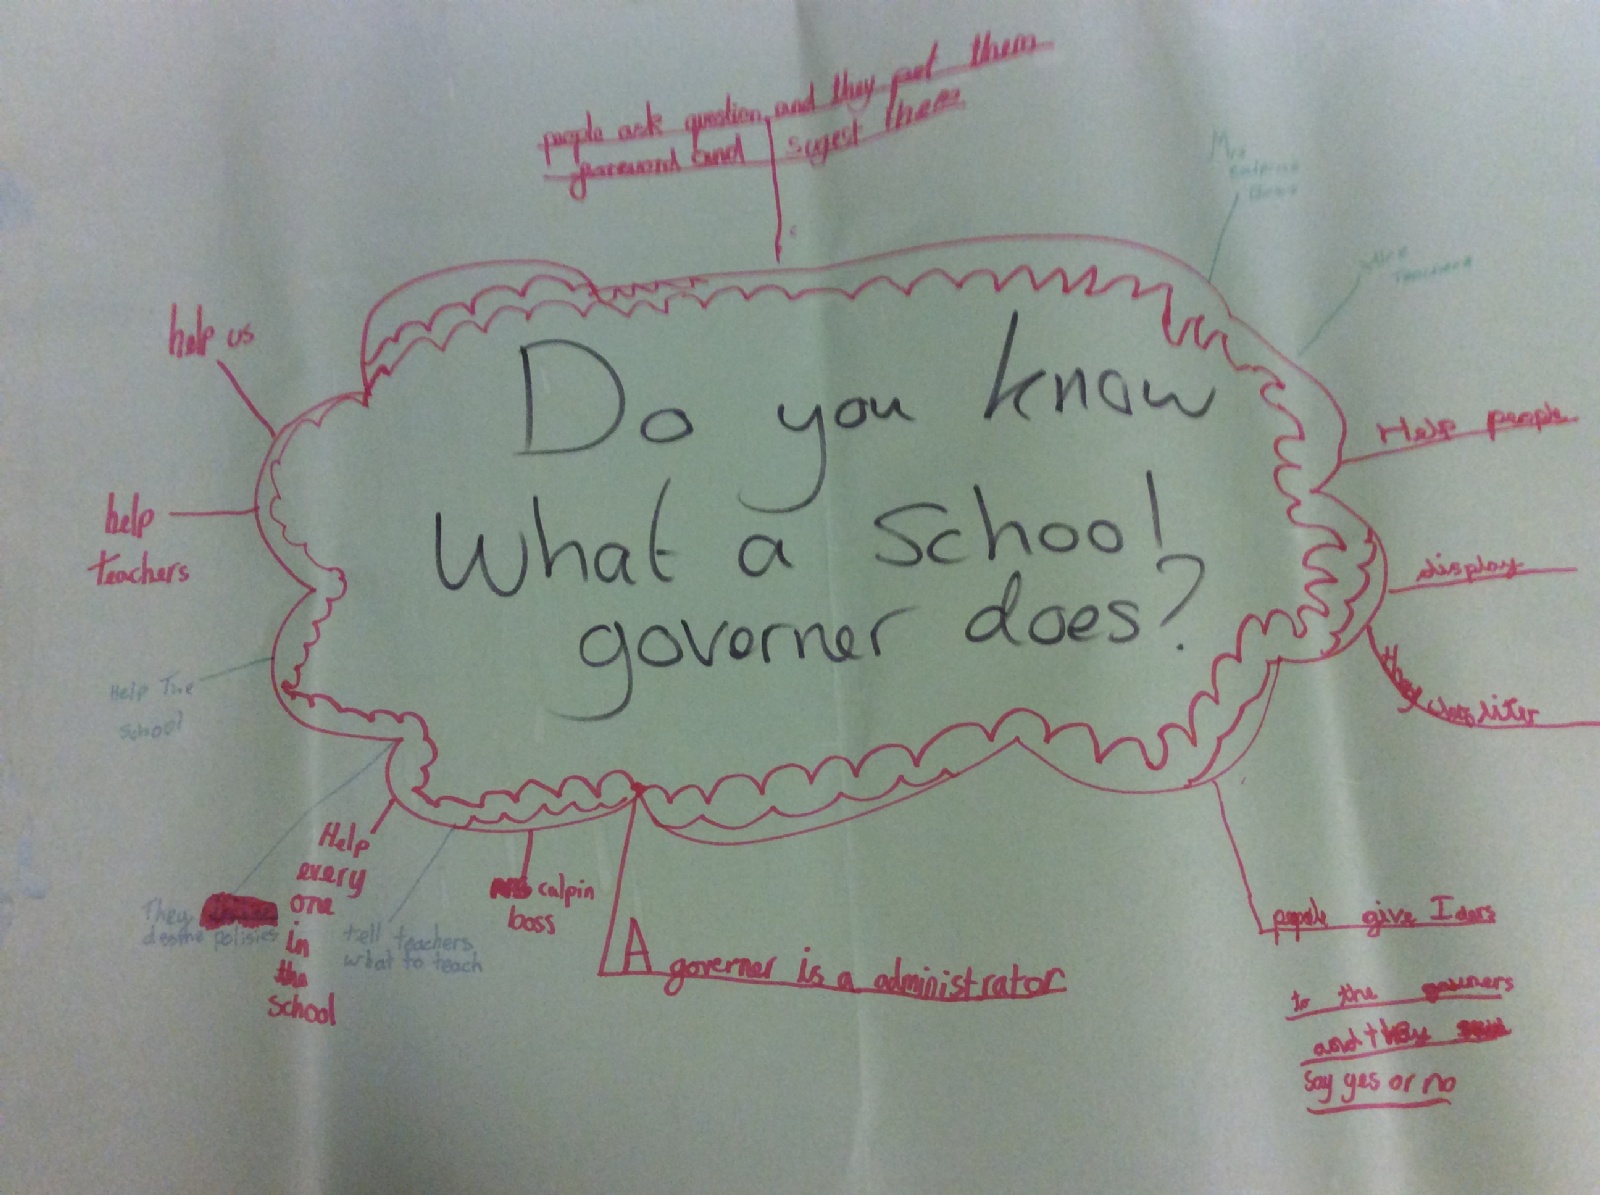 people ask question and they put them
foreword and sugest them
Mrs
calpins
Boss
Teachers
help us
Do you know
What a School
governer does?
Help people
help
teachers
display
Help The
School
they
liter
Help
every
one
in
the
School
They
desine polisies
tell teachers
what to teach
calpin
boss
A governer is a administrator
people give Iders
to the governers
and they
Say yes or no